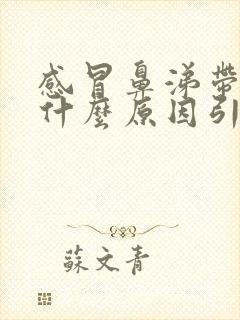 感冒鼻涕帶
什麼原因引
蘇文青